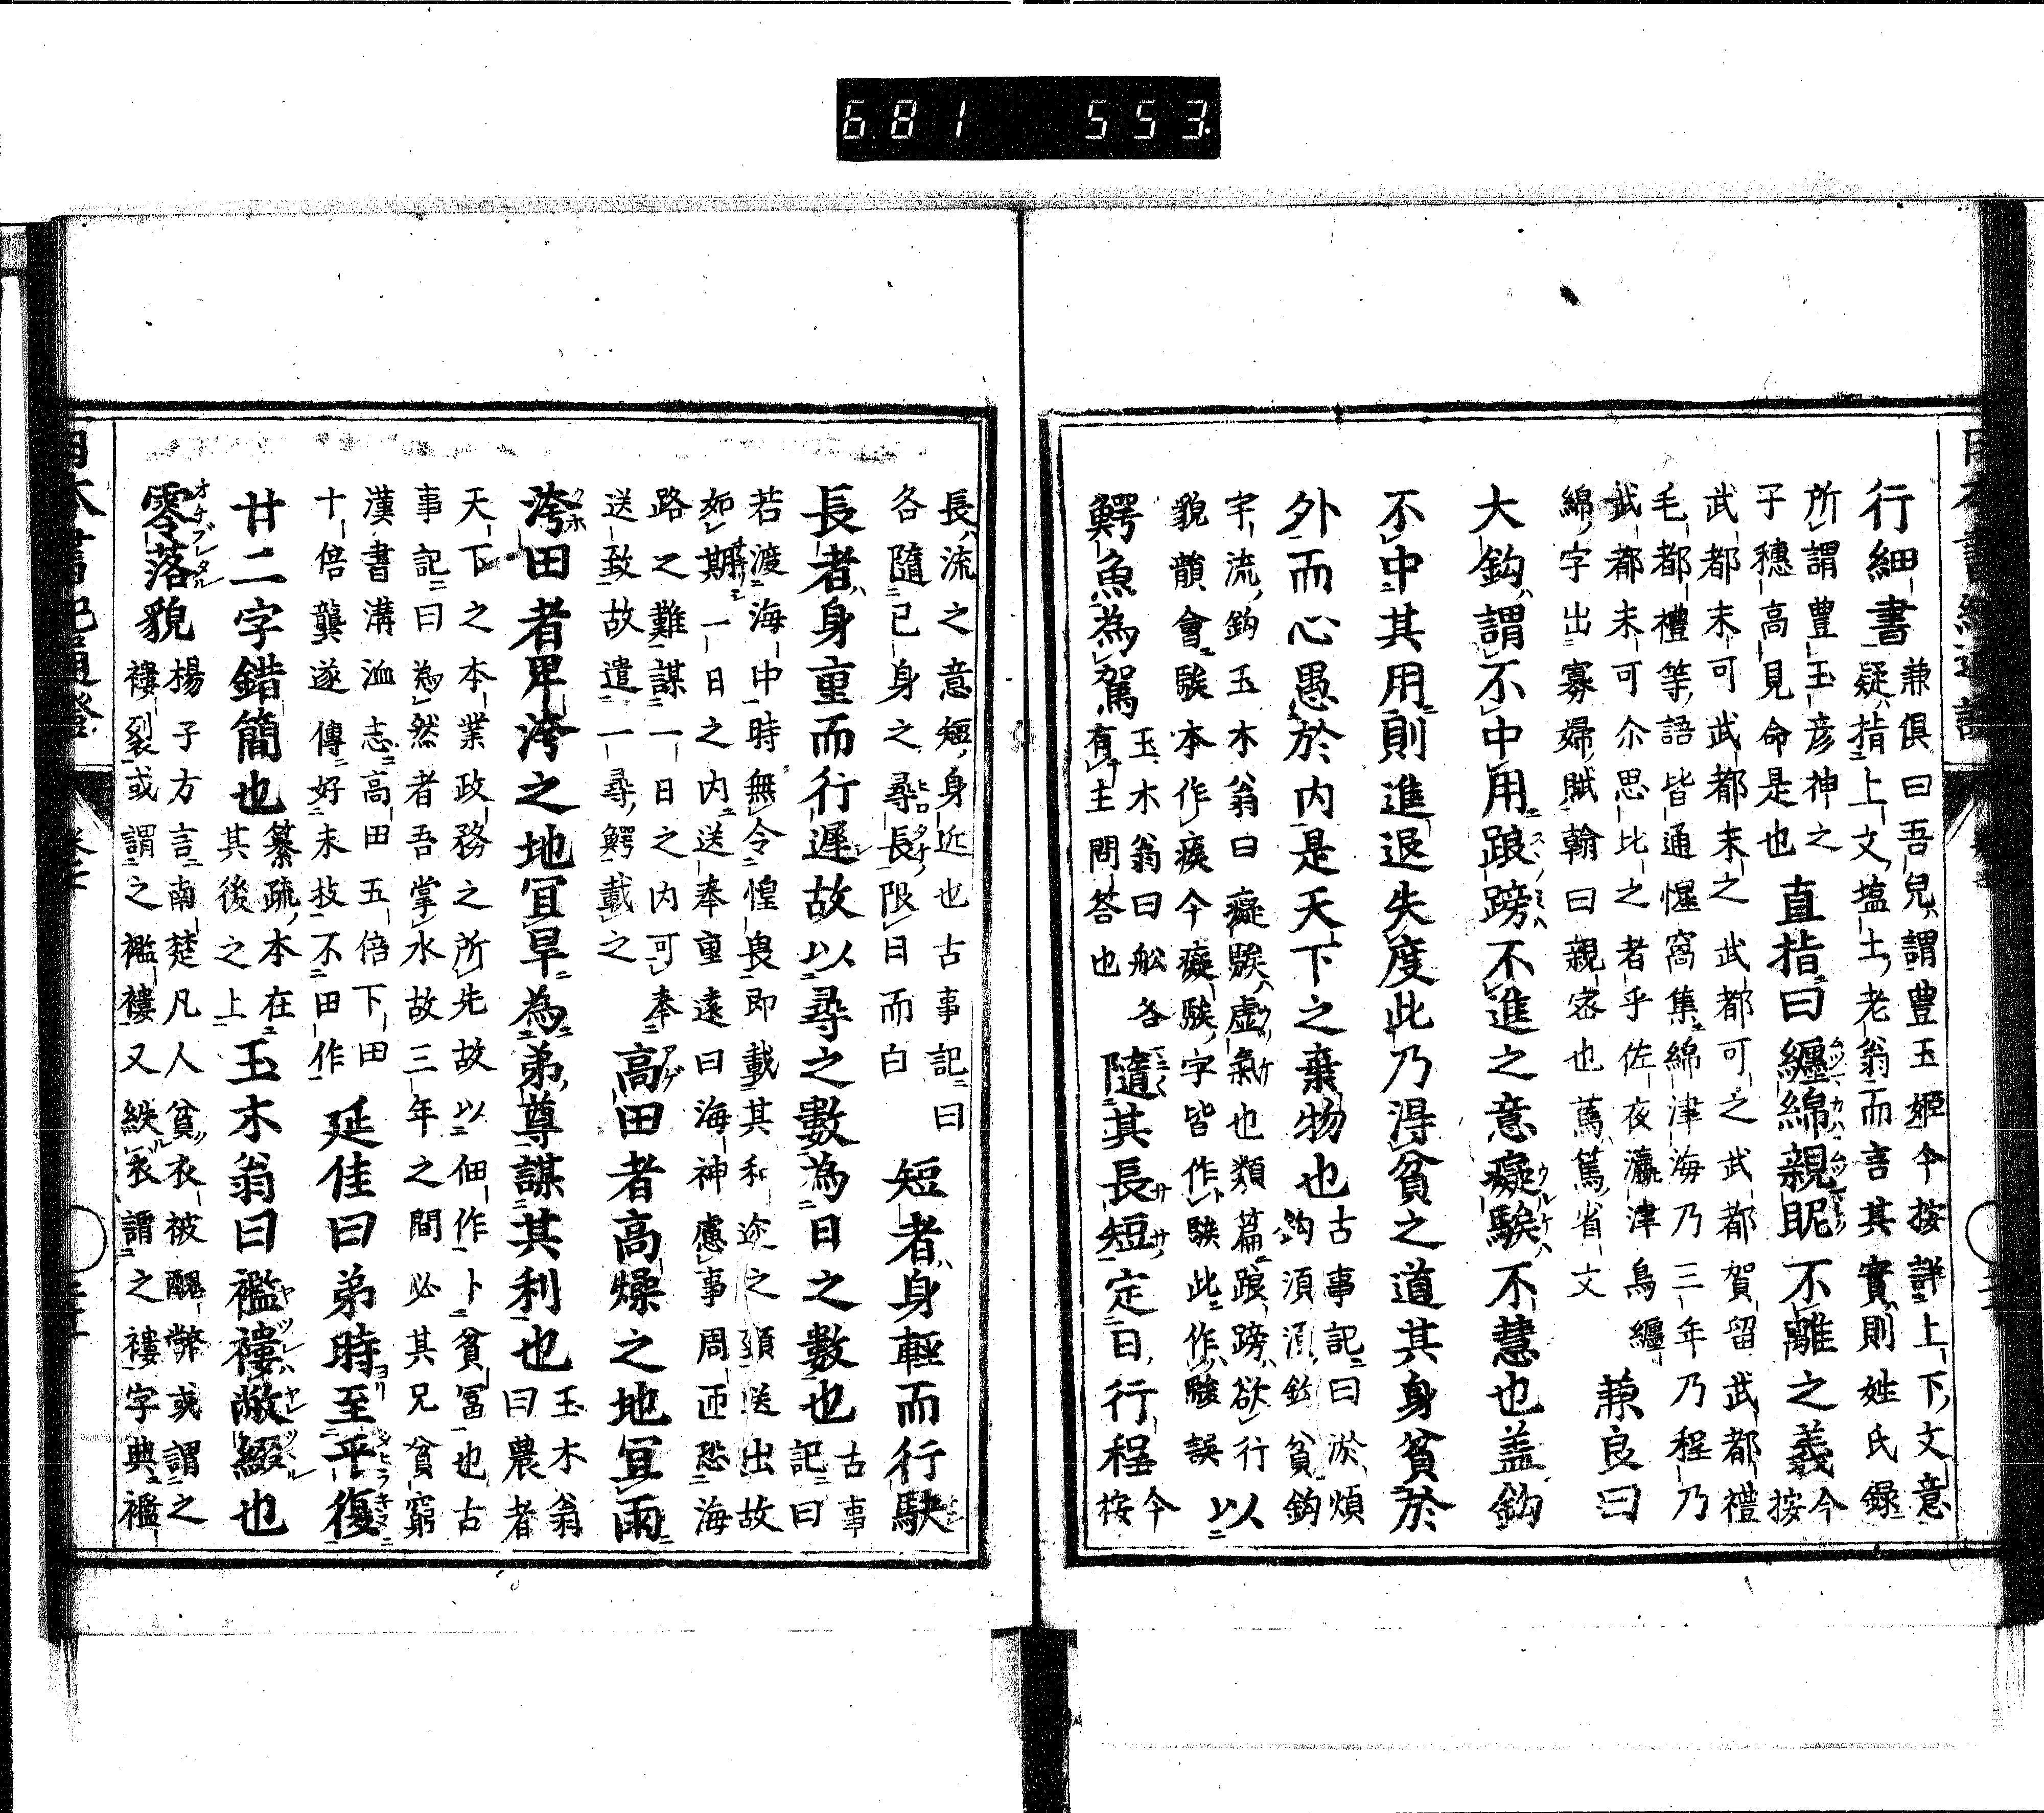 681 553
行細書兼俱曰吾兒謂豊玉姬今按詳上下文意
疑指上文塩土老翁而言其實則姓氏録
所謂豊玉彦神之
子穗高見命是也直指曰纏綿親昵不離之義今按
武都末可武都末之武都可之武都賀留武都禮
毛都禮等語皆通惺窩集綿津海乃三年乃程乃
武都末可尒思比之者乎佐夜瀛津鳥纏
綿字出寡婦賦翰曰親宻也蔦篤省文兼良曰
大鈎謂不中用踉蹡不進之意癡騃不慧也盖鈎
不中其用則進退失度此乃淂貧之道其身貧於
外而心愚於内是天下之棄物也古事記曰淤煩
鈎須須鈎貧鈎
宇流鈎玉木翁曰癡騃虚氣也類篇踉蹡欲行
貌韻會騃本作㾻今癡騃字皆作騃此作騃誤以
鰐魚為駕玉木翁曰舩各
有主問答也隨其長短定日行程今按
長流之意短身近也古事記曰
各隨已身之尋長限日而白短者身輕而行駃
長者身重而行遲故以尋之數為日之數也古事記曰
若渡海中時無令惶畏即載其和途之頸送出故
如期一日之内送奉重遠曰海神慮事周匝恐海
路之難謀一日之内可奉高田者高燥之地冝雨
送致故遣一尋鰐載之
洿田者卑洿之地冝旱為弟尊謀其利也玉木翁曰農者
天下之本業政務之所先故以佃作卜貧冨也古
事記曰為然者吾掌水故三年之間必其兄貧窮
漢書溝洫志高田五倍下田
十倍龔遂傳好末技不田作延佳曰弟時至平復
廿二字錯簡也纂疏本在
其後之上玉木翁曰襤褸敝綴也
零落貌楊子方言南楚凡人貧衣被醜弊或謂之
褸裂或謂之襤褸又紩衣謂之褸字典襤